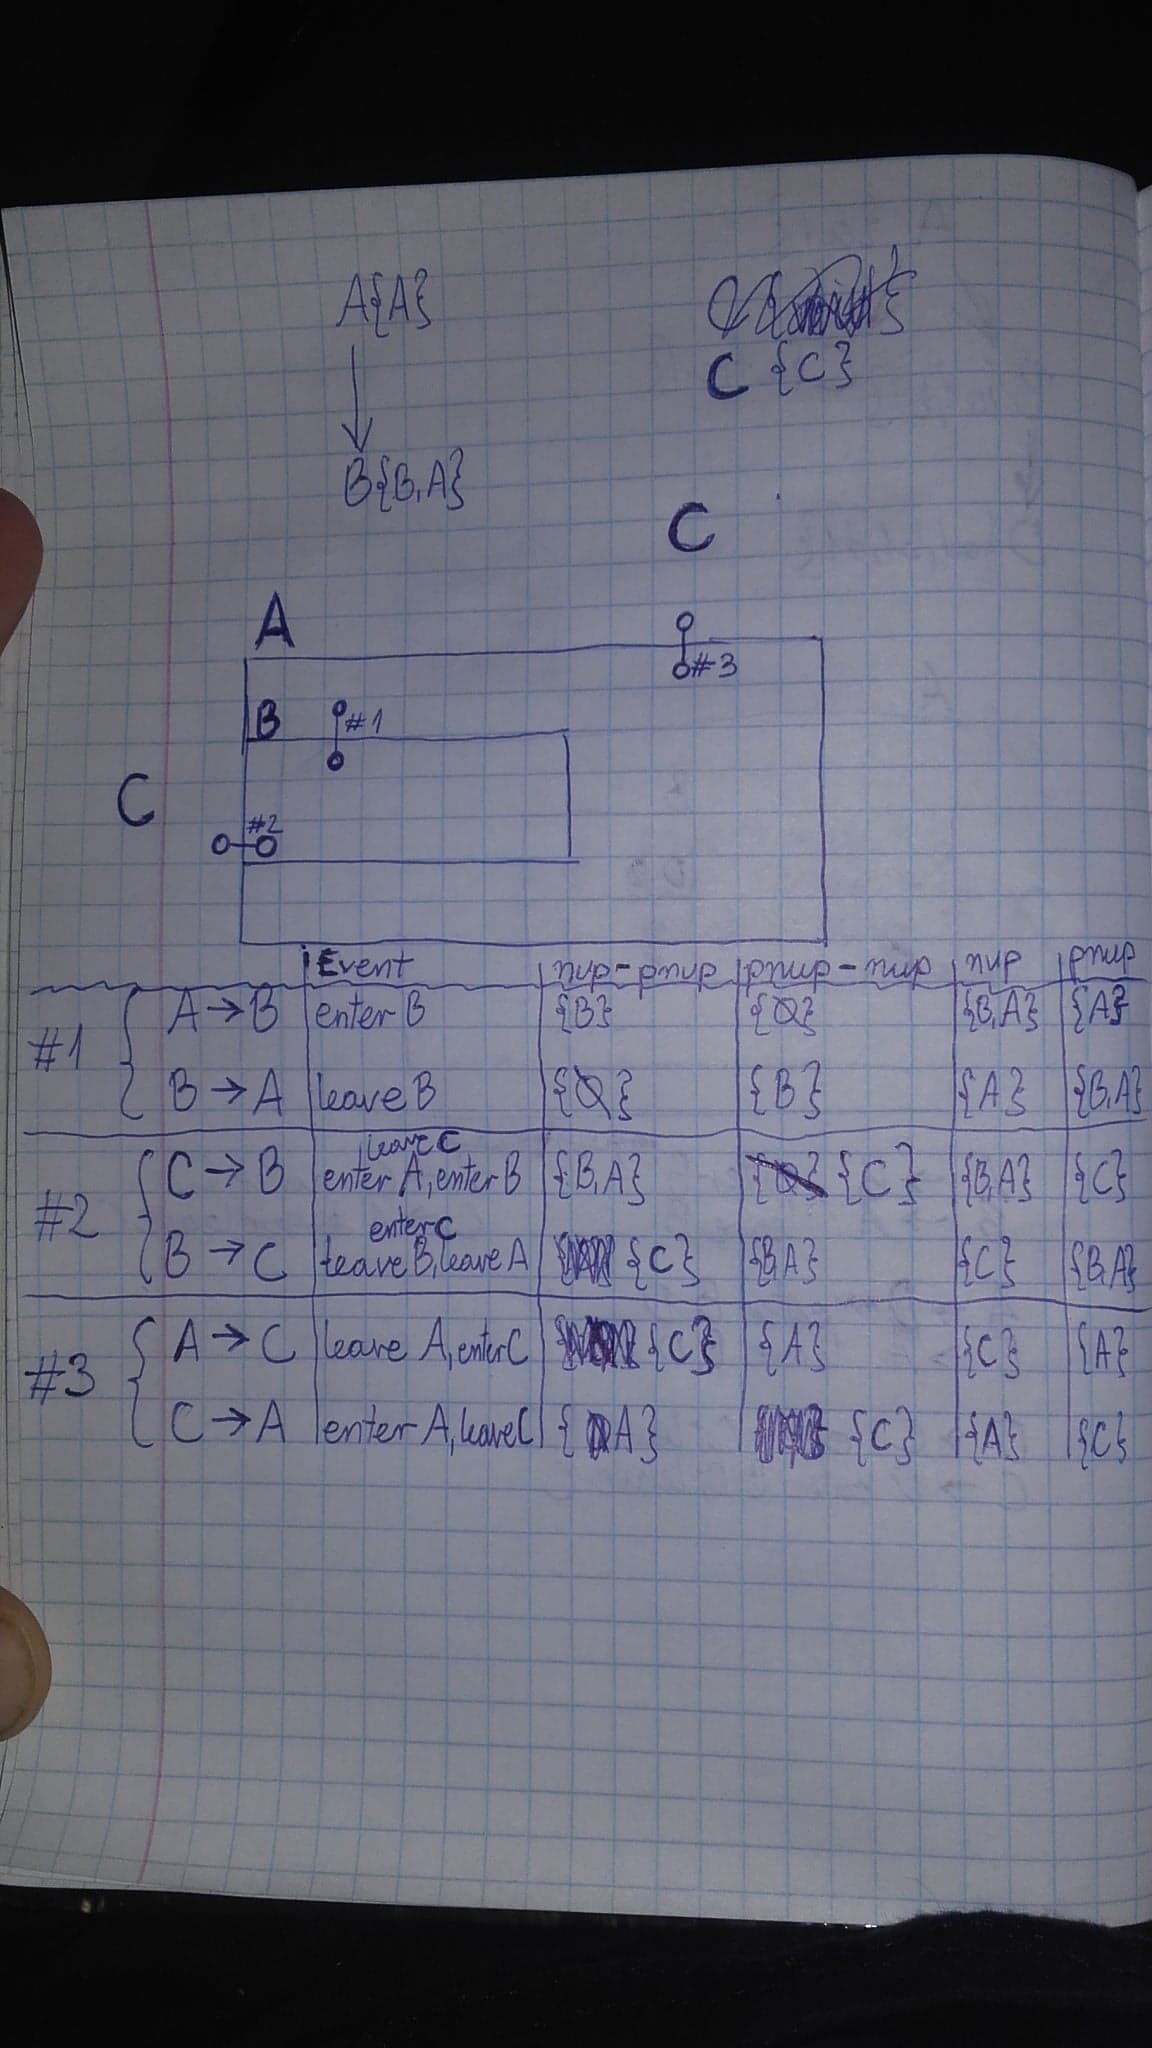 A{A}
C {C}
B{B,A}
C
A
#3
B #1
C
#2
Event nup-pnup pnup-nup nup pnup
#1 A→B enter B {B} {Ø} {B,A} {A}
B→A leave B {Ø} {B} {A} {B,A}
leave C
#2 C→B enter A, enter B {B,A} {Ø} {C} {B,A} {C}
enter C
B→C leave B, leave A {C} {B,A} {C} {B,A}
#3 A→C leave A, enter C {C} {A} {C} {A}
C→A enter A, leave C {A} {C} {A} {C}